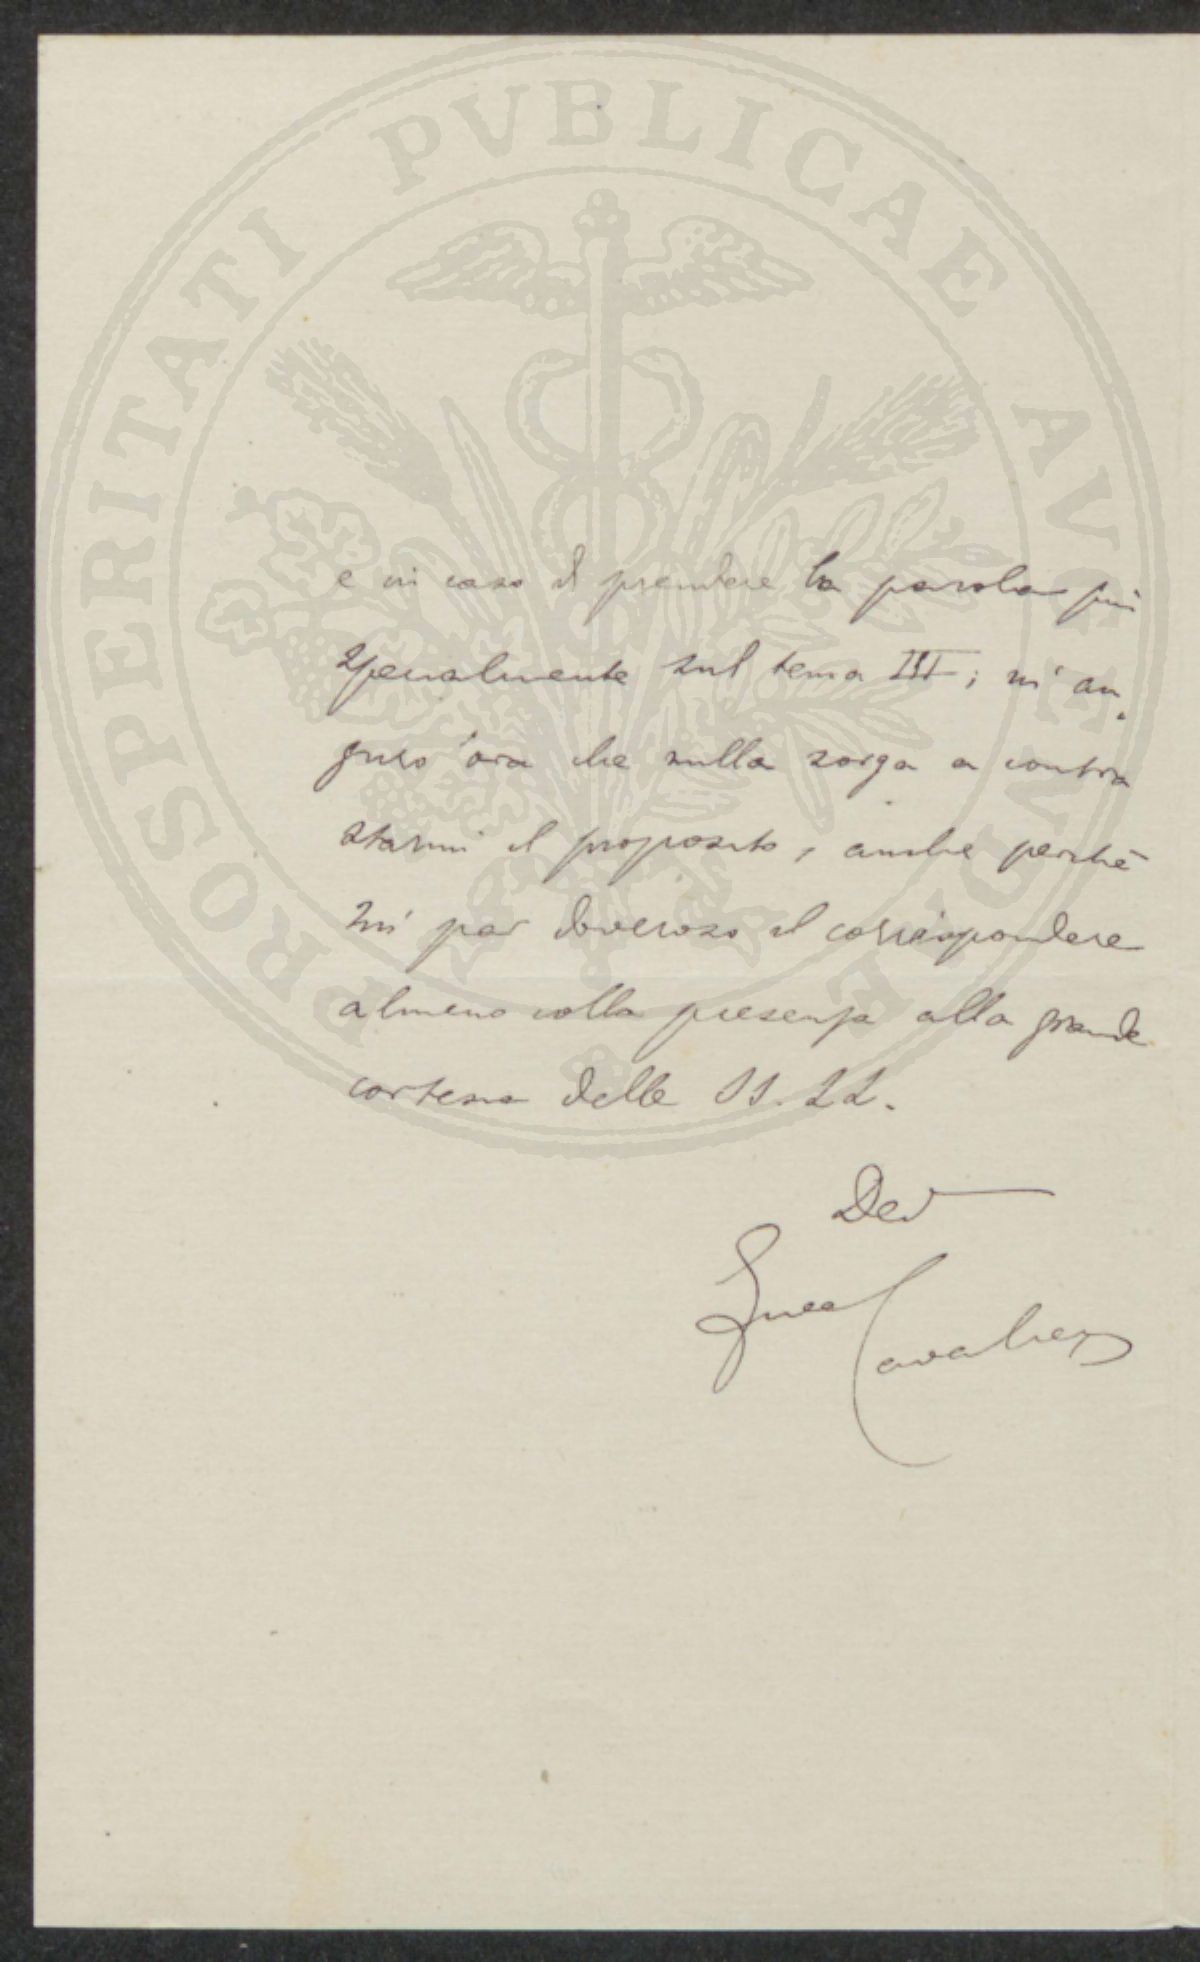 PROSPERITATI PVBLICAE AVGENDAE
e in caso di prendere la parola più
specialmente sul tema III; m'au
guro ora che nulla sorga a contra
starmi il proposito, anche perchè
mi par doveroso il corrispondere
almeno colla presenza alla grande
cortesia delle SS. LL.
Dev
Luca Cavalieri